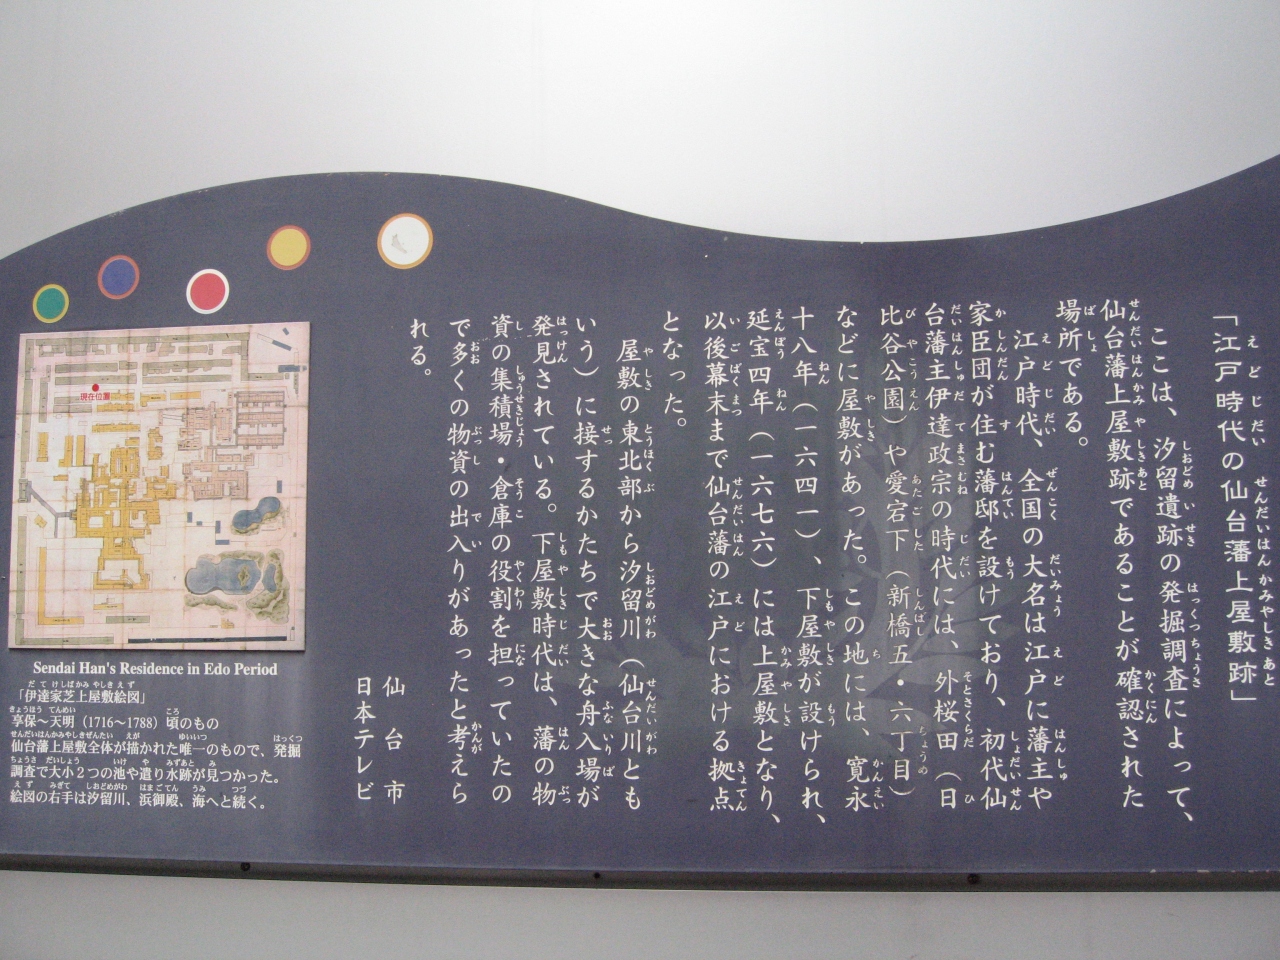 「江戸時代の仙台藩上屋敷跡」
ここは、汐留遺跡の発掘調査によって、
仙台藩上屋敷跡であることが確認された
場所である。
江戸時代、全国の大名は江戸に藩主や
家臣団が住む藩邸を設けており、初代仙
台藩主伊達政宗の時代には、外桜田（日
比谷公園）や愛宕下（新橋五・六丁目）
などに屋敷があった。この地には、寛永
十八年（一六四一）、下屋敷が設けられ、
延宝四年（一六七六）には上屋敷となり、
以後幕末まで仙台藩の江戸における拠点
となった。
屋敷の東北部から汐留川（仙台川とも
いう）に接するかたちで大きな舟入場が
発見されている。下屋敷時代は、藩の物
資の集積場・倉庫の役割を担っていたの
で多くの物資の出入りがあったと考えら
れる。
仙台市
日本テレビ
現在位置
Sendai Han's Residence in Edo Period
「伊達家芝上屋敷絵図」
享保～天明（1716～1788）頃のもの
仙台藩上屋敷全体が描かれた唯一のもので、発掘
調査で大小２つの池や遣り水跡が見つかった。
絵図の右手は汐留川、浜御殿、海へと続く。